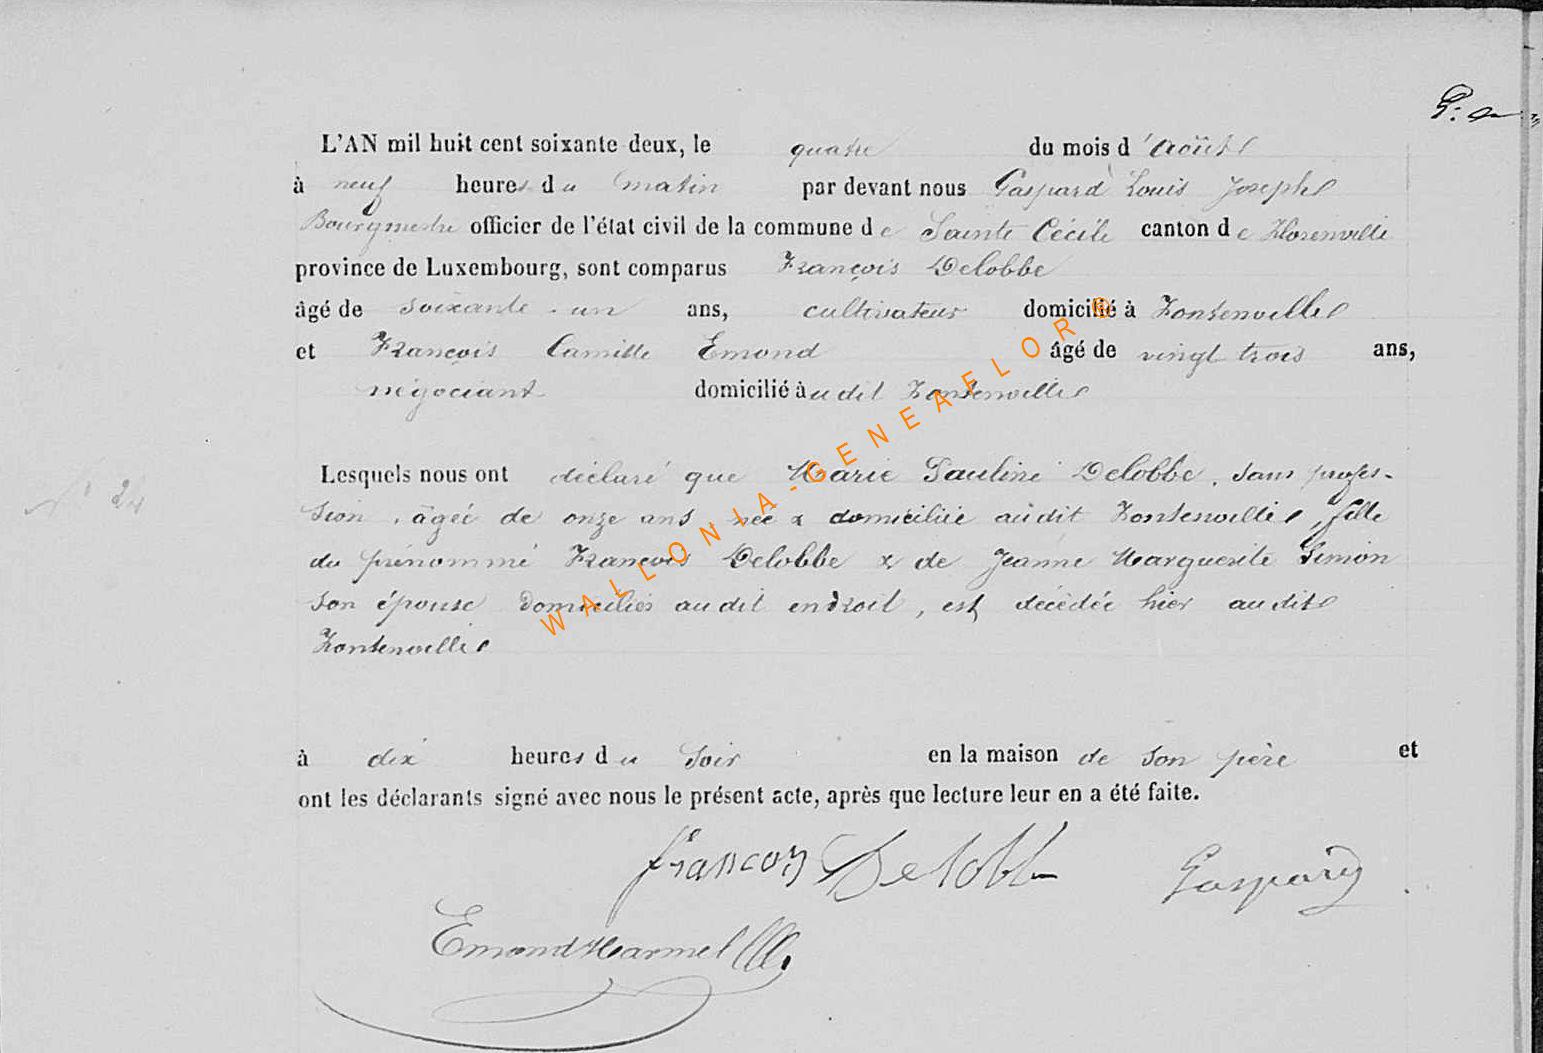 L'AN mil huit cent soixante deux, le quatre du mois d'Août
à neuf heures du matin par devant nous Gaspard Louis Joseph
Bourgmestre officier de l'état civil de la commune de Sainte Cécile canton de Florenville
province de Luxembourg, sont comparus François Delobbe
âgé de soixante-un ans, cultivateur domicilié à Fontenoille
et François Camille Emond âgé de vingt trois ans,
négociant domicilié audit Fontenoille
Lesquels nous ont déclaré que Marie Pauline Delobbe, sans profes-
N° 24
sion, âgée de onze ans, née & domiciliée audit Fontenoille, fille
du prénommé François Delobbe & de Jeanne Marguerite Simon
son épouse domiciliés audit endroit, est décédée hier audit
Fontenoille
à dix heures du soir en la maison de son père et
ont les déclarants signé avec nous le présent acte, après que lecture leur en a été faite.
francois Delobbe Gaspard
Emond Harmel
WALLONIA-GENEAFLOR®